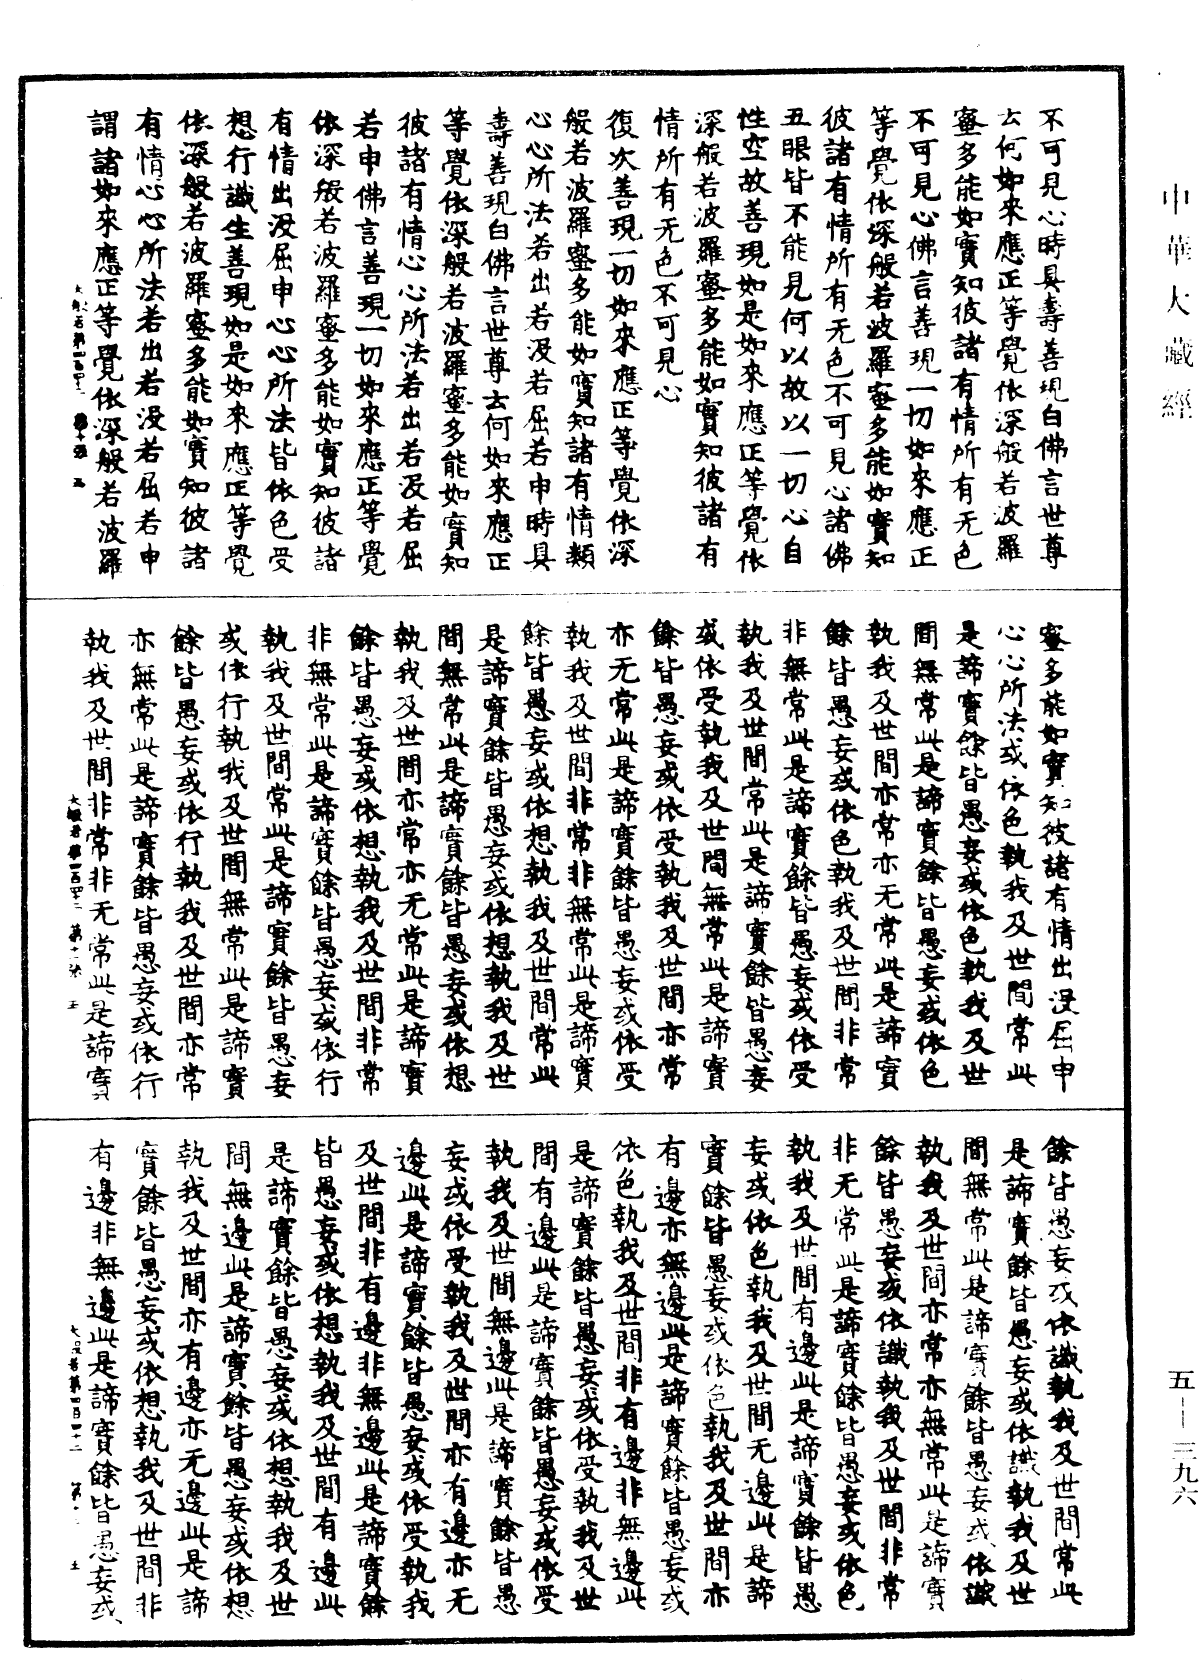 中華大藏經
不可見心時具壽善現白佛言世尊
云何如來應正等覺依深般若波羅
蜜多能如實知彼諸有情所有无色
不可見心佛言善現一切如來應正
等覺依深般若波羅蜜多能如實知
彼諸有情所有无色不可見心諸佛
五眼皆不能見何以故以一切心自
性空故善現如是如來應正等覺依
深般若波羅蜜多能如實知彼諸有
情所有无色不可見心
復次善現一切如來應正等覺依深
般若波羅蜜多能如實知諸有情類
心心所法若出若没若屈若申時具
壽善現白佛言世尊云何如來應正
等覺依深般若波羅蜜多能如實知
彼諸有情心心所法若出若没若屈
若申佛言善現一切如來應正等覺
依深般若波羅蜜多能如實知彼諸
有情出没屈申心心所法皆依色受
想行識生善現如是如來應正等覺
依深般若波羅蜜多能如實知彼諸
有情心心所法若出若没若屈若申
謂諸如來應正等覺依深般若波羅
蜜多能如實知彼諸有情出没屈申
心心所法或依色執我及世間常此
是諦實餘皆愚妄或依色執我及世
間無常此是諦實餘皆愚妄或依色
執我及世間亦常亦无常此是諦實
餘皆愚妄或依色執我及世間非常
非無常此是諦實餘皆愚妄或依受
執我及世間常此是諦實餘皆愚妄
或依受執我及世間無常此是諦實
餘皆愚妄或依受執我及世間亦常
亦无常此是諦實餘皆愚妄或依受
執我及世間非常非無常此是諦實
餘皆愚妄或依想執我及世間常此
是諦實餘皆愚妄或依想執我及世
間無常此是諦實餘皆愚妄或依想
執我及世間亦常亦无常此是諦實
餘皆愚妄或依想執我及世間非常
非無常此是諦實餘皆愚妄或依行
執我及世間常此是諦實餘皆愚妄
或依行執我及世間無常此是諦實
餘皆愚妄或依行執我及世間亦常
亦無常此是諦實餘皆愚妄或依行
執我及世間非常非无常此是諦實
餘皆愚妄或依識執我及世間常此
是諦實餘皆愚妄或依識執我及世
間無常此是諦實餘皆愚妄或依識
執我及世間亦常亦無常此是諦實
餘皆愚妄或依識執我及世間非常
非无常此是諦實餘皆愚妄或依色
執我及世間有邊此是諦實餘皆愚
妄或依色執我及世間无邊此是諦
實餘皆愚妄或依色執我及世間亦
有邊亦無邊此是諦實餘皆愚妄或
依色執我及世間非有邊非無邊此
是諦實餘皆愚妄或依受執我及世
間有邊此是諦實餘皆愚妄或依受
執我及世間無邊此是諦實餘皆愚
妄或依受執我及世間亦有邊亦无
邊此是諦實餘皆愚妄或依受執我
及世間非有邊非無邊此是諦實餘
皆愚妄或依想執我及世間有邊此
是諦實餘皆愚妄或依想執我及世
間無邊此是諦實餘皆愚妄或依想
執我及世間亦有邊亦无邊此是諦
實餘皆愚妄或依想執我及世間非
有邊非無邊此是諦實餘皆愚妄或
五—三九六